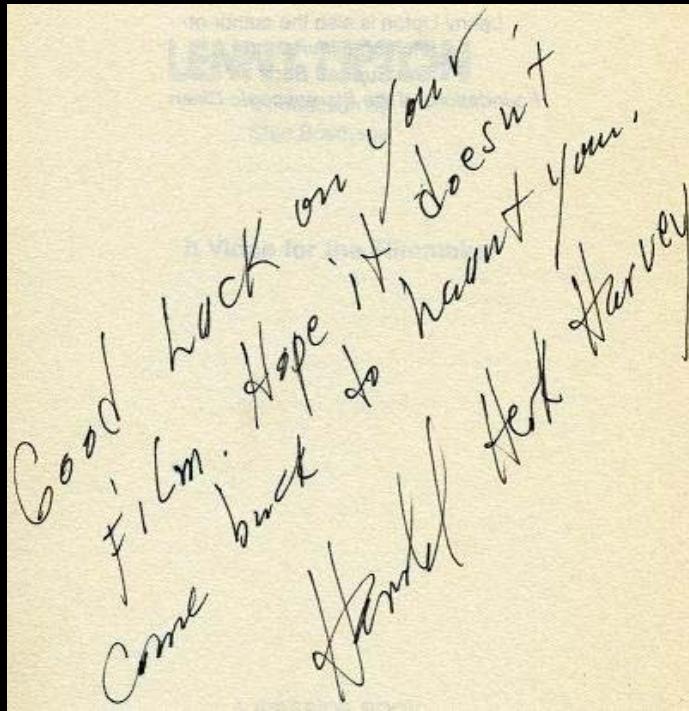 Good Luck on your
Film. Hope it doesn't
come back to haunt you.
Harold Herk Harvey